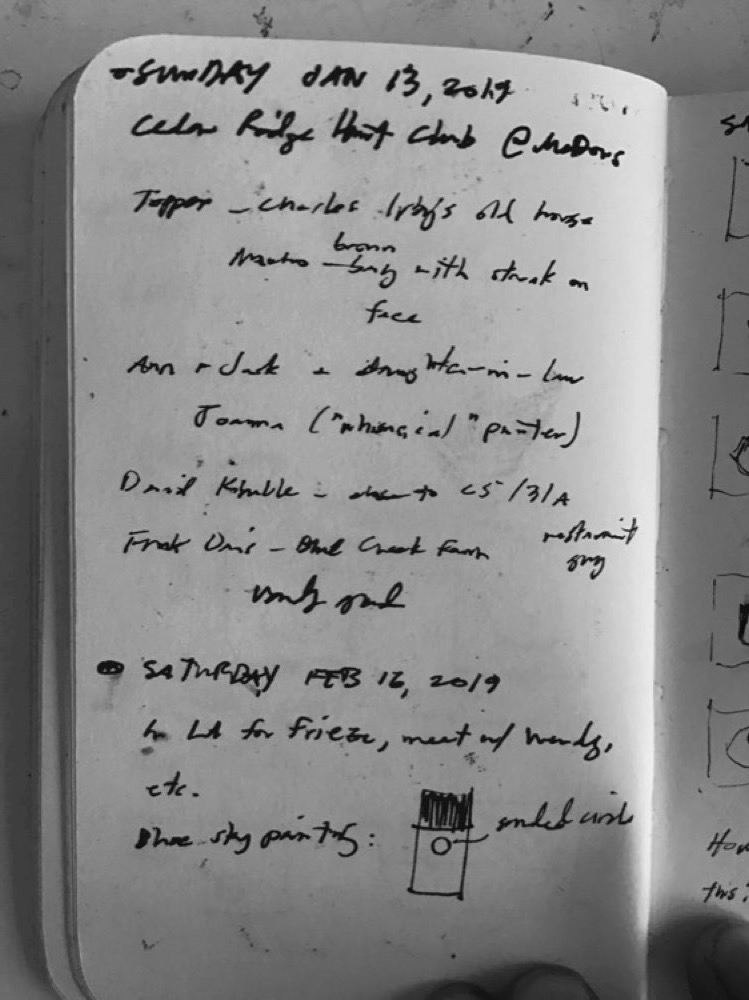 - SUNDAY JAN 13, 2019
Cedar Ridge Hunt Club @
Topper - Charles old horse
brown
- bay with streak on
face
Ann + Jack + daughter-in-law
Joanna ("whimsical" painter)
David - close to C5/3/A
Frank Davis - Owl Creek Farm
restraint
guy
SATURDAY FEB 16, 2019
In LA for Frieze, meet w/ Wendy,
etc.
Blue sky painting: sanded circle
How
this?